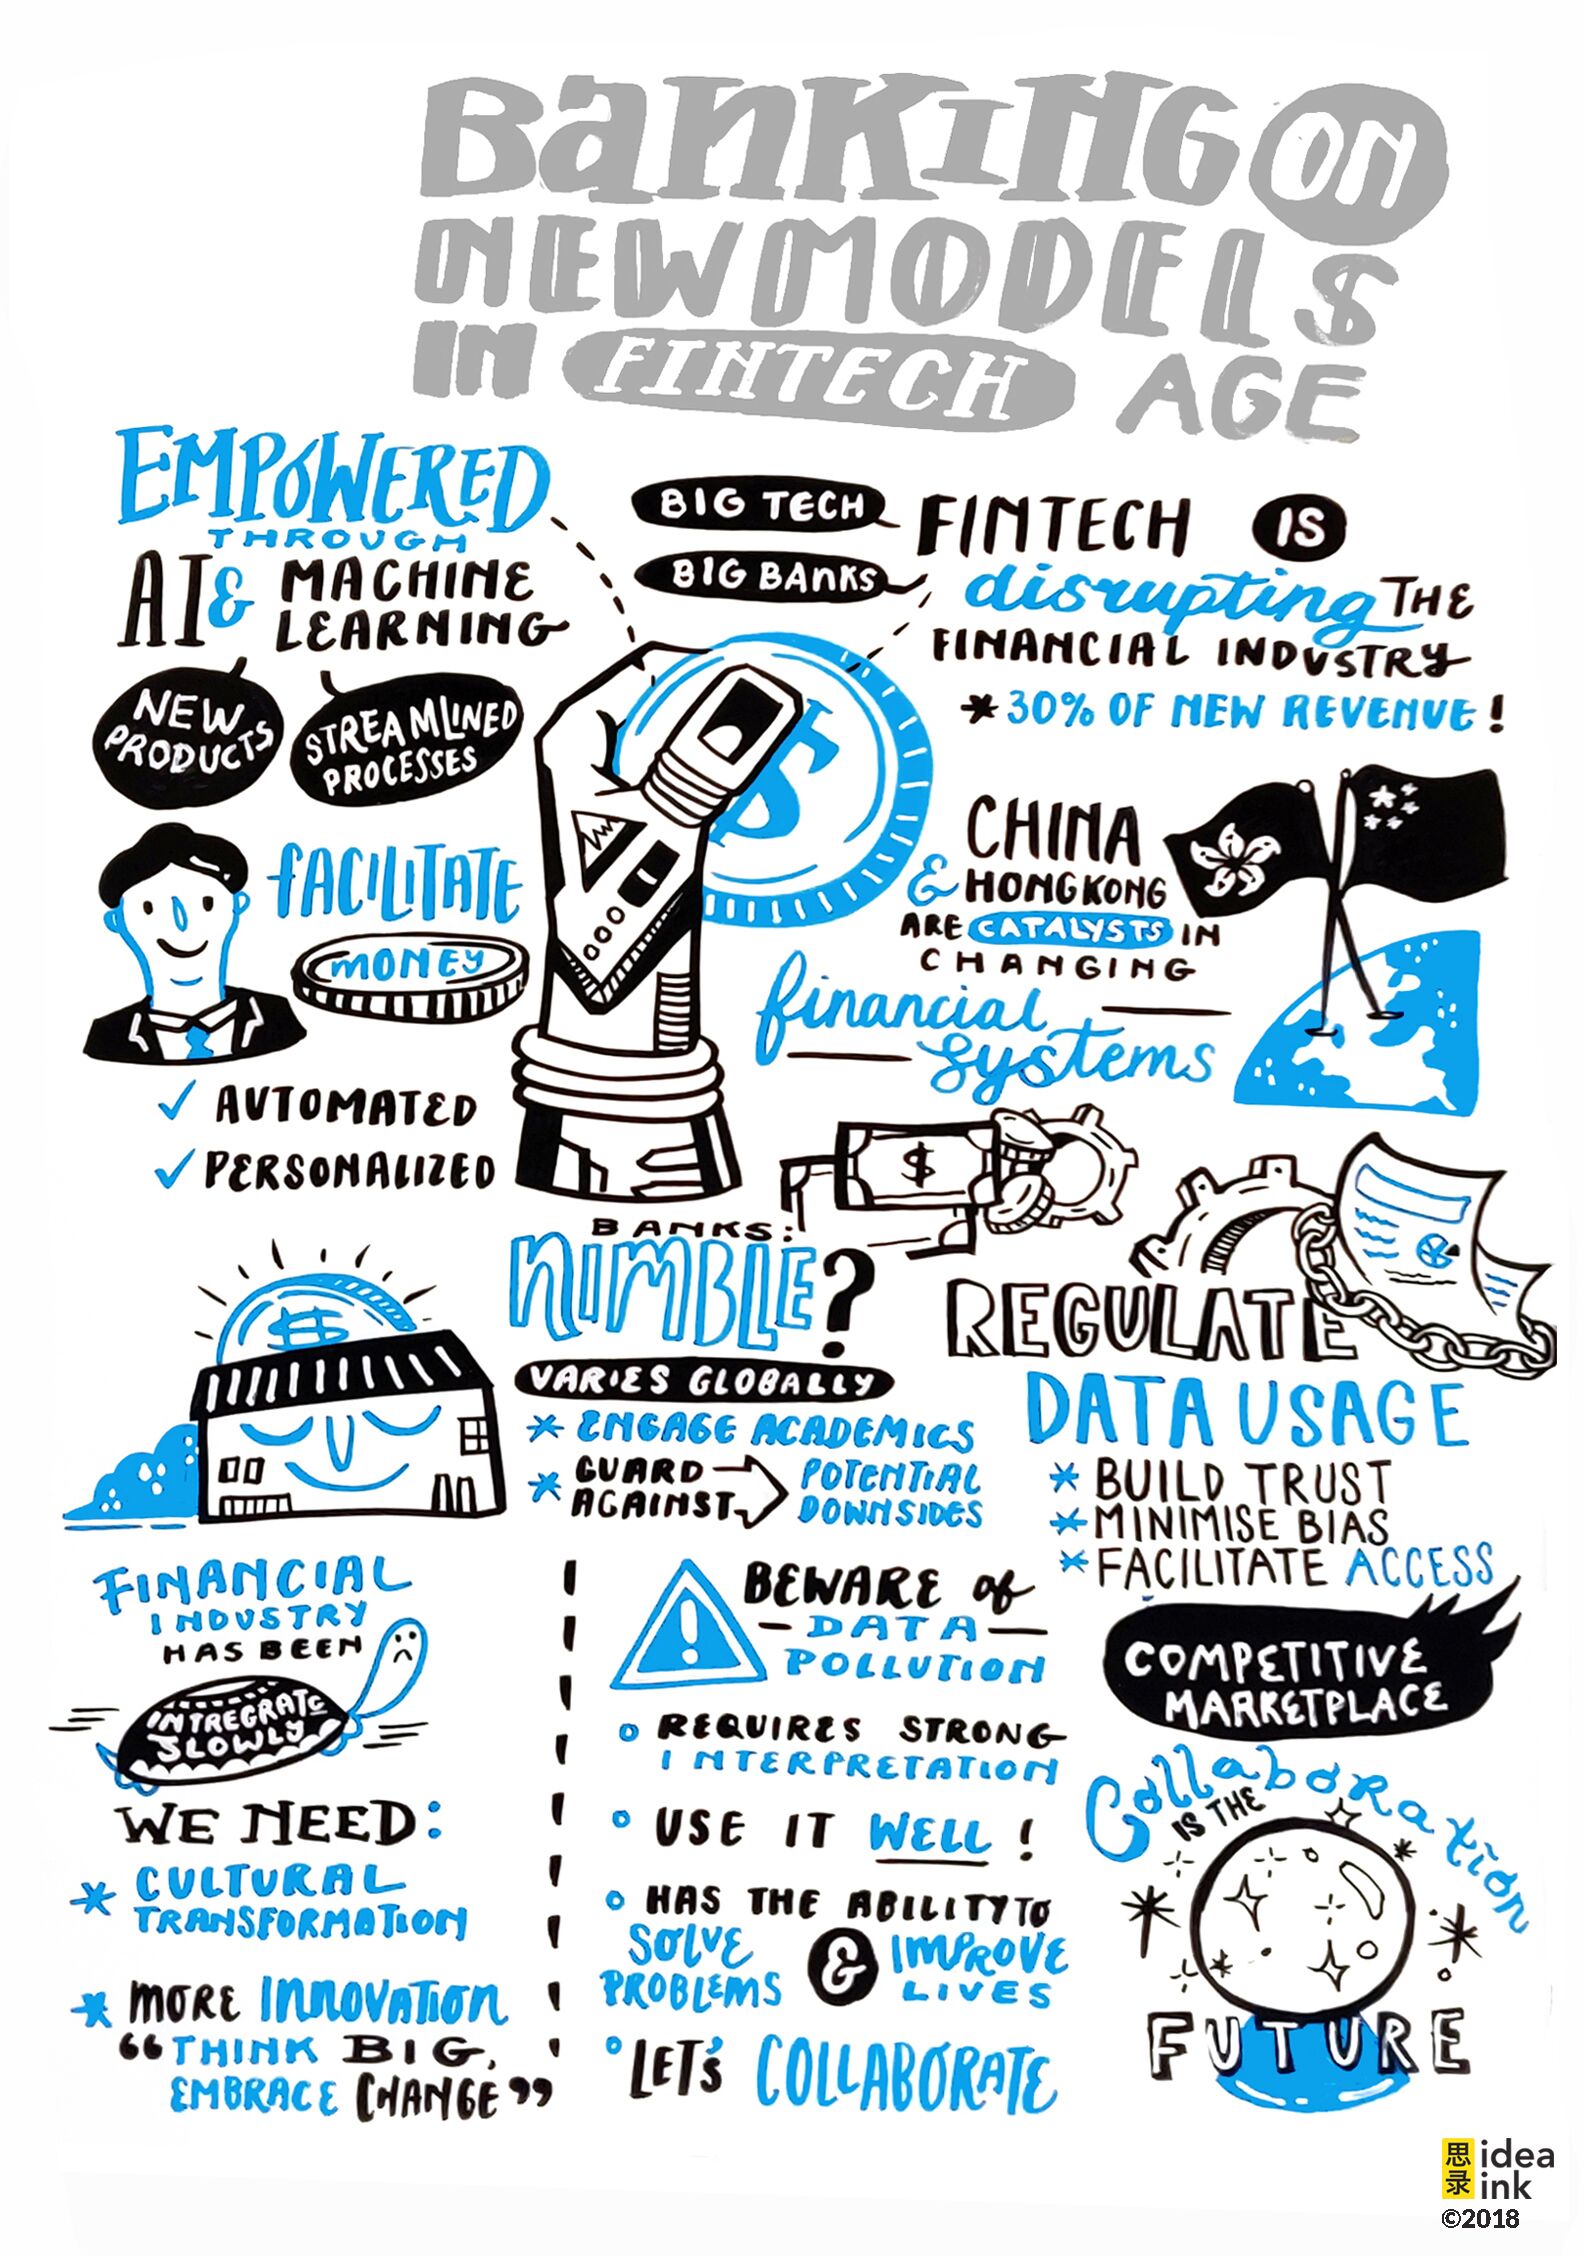 BANKING ON
NEW MODELS
IN FINTECH AGE
EMPOWERED
THROUGH
AI & MACHINE
LEARNING
NEW
PRODUCTS
STREAMLINED
PROCESSES
FACILITATE
MONEY
✓ AUTOMATED
✓ PERSONALIZED
BIG TECH
BIG BANKS
FINTECH IS
disrupting THE
FINANCIAL INDUSTRY
* 30% OF NEW REVENUE!
$
CHINA
& HONGKONG
ARE CATALYSTS IN
CHANGING
financial
systems
$
BANKS:
NIMBLE?
VARIES GLOBALLY
* ENGAGE ACADEMICS
* GUARD AGAINST → POTENTIAL
DOWNSIDES
REGULATE
DATA USAGE
* BUILD TRUST
* MINIMISE BIAS
* FACILITATE ACCESS
COMPETITIVE
MARKETPLACE
$
FINANCIAL
INDUSTRY
HAS BEEN
INTREGRATE
SLOWLY
WE NEED:
* CULTURAL
TRANSFORMATION
* MORE INNOVATION
“THINK BIG,
EMBRACE CHANGE”
!
BEWARE of
DATA
POLLUTION
REQUIRES STRONG
INTERPRETATION
USE IT WELL!
HAS THE ABILITY TO
SOLVE
PROBLEMS & IMPROVE
LIVES
LET'S COLLABORATE
Collaboration
IS THE
FUTURE
思录 idea
ink
©2018